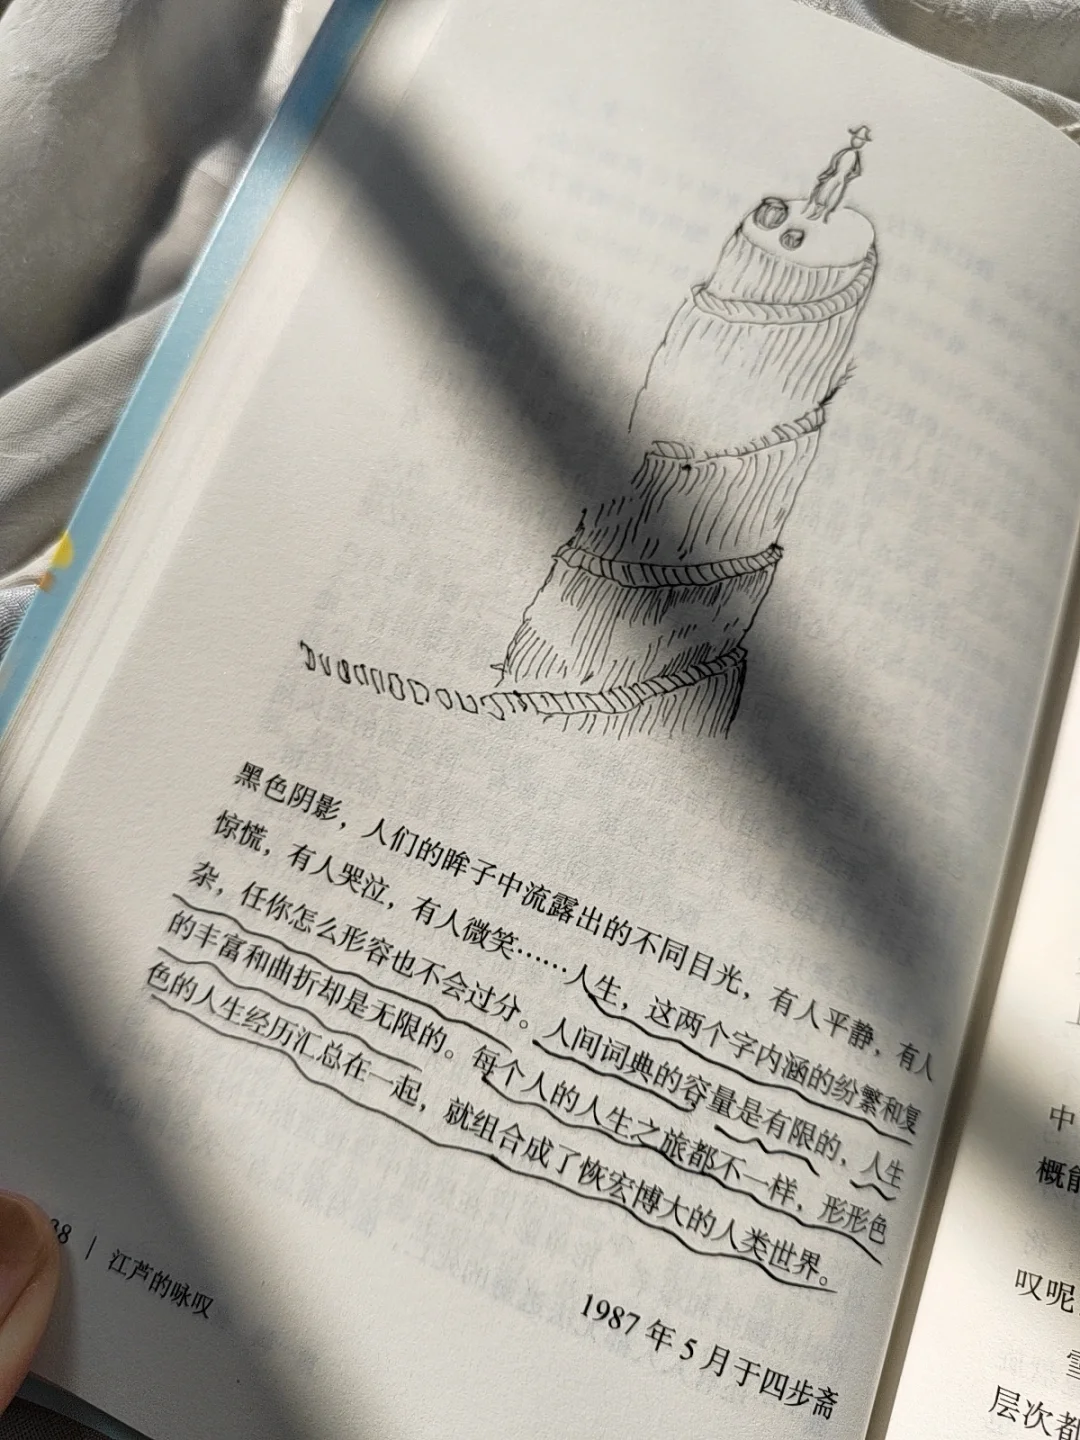 黑色阴影，人们的眸子中流露出的不同目光，有人平静，有人
惊慌，有人哭泣，有人微笑……人生，这两个字内涵的纷繁和复
杂，任你怎么形容也不会过分。人间词典的容量是有限的，人生
的丰富和曲折却是无限的。每个人的人生之旅都不一样，形形色
色的人生经历汇总在一起，就组合成了恢宏博大的人类世界。
1987 年 5 月于四步斋
38 | 江芦的咏叹
中
概能
叹呢
层次都